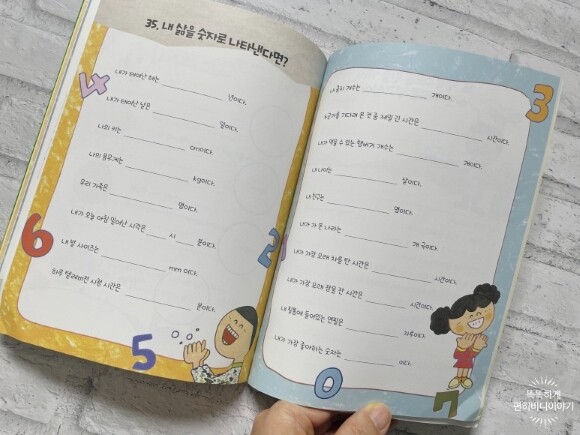 35. 내 삶을 숫자로 나타낸다면?
내가 태어난 해는 ________ 년이다.
내가 태어난 날은 ________ 일이다.
나의 키는 ________ cm이다.
나의 몸무게는 ________ kg이다.
우리 가족은 ________ 명이다.
내가 오늘 아침 일어난 시각은 ____ 시 ____ 분이다.
내 발 사이즈는 ________ mm 이다.
하루 텔레비전 시청 시간은 ________ 분이다.
4
6
5
2
개이다.
시간이다.
내가 먹을 수 있는 ________ 개이다.
내 나이는 ________ 살이다.
내 친구는 ________ 명이다.
내가 가 본 나라는 ________ 개 국이다.
내가 가장 오래 차를 탄 시간은 ________ 시간이다.
내가 가장 오래 잠을 잔 시간은 ________ 시간이다.
내 필통에 들어있는 연필은 ________ 자루이다.
내가 가장 좋아하는 숫자는 ________ 이다.
3
0
7
똑똑하게
편히비니이야기